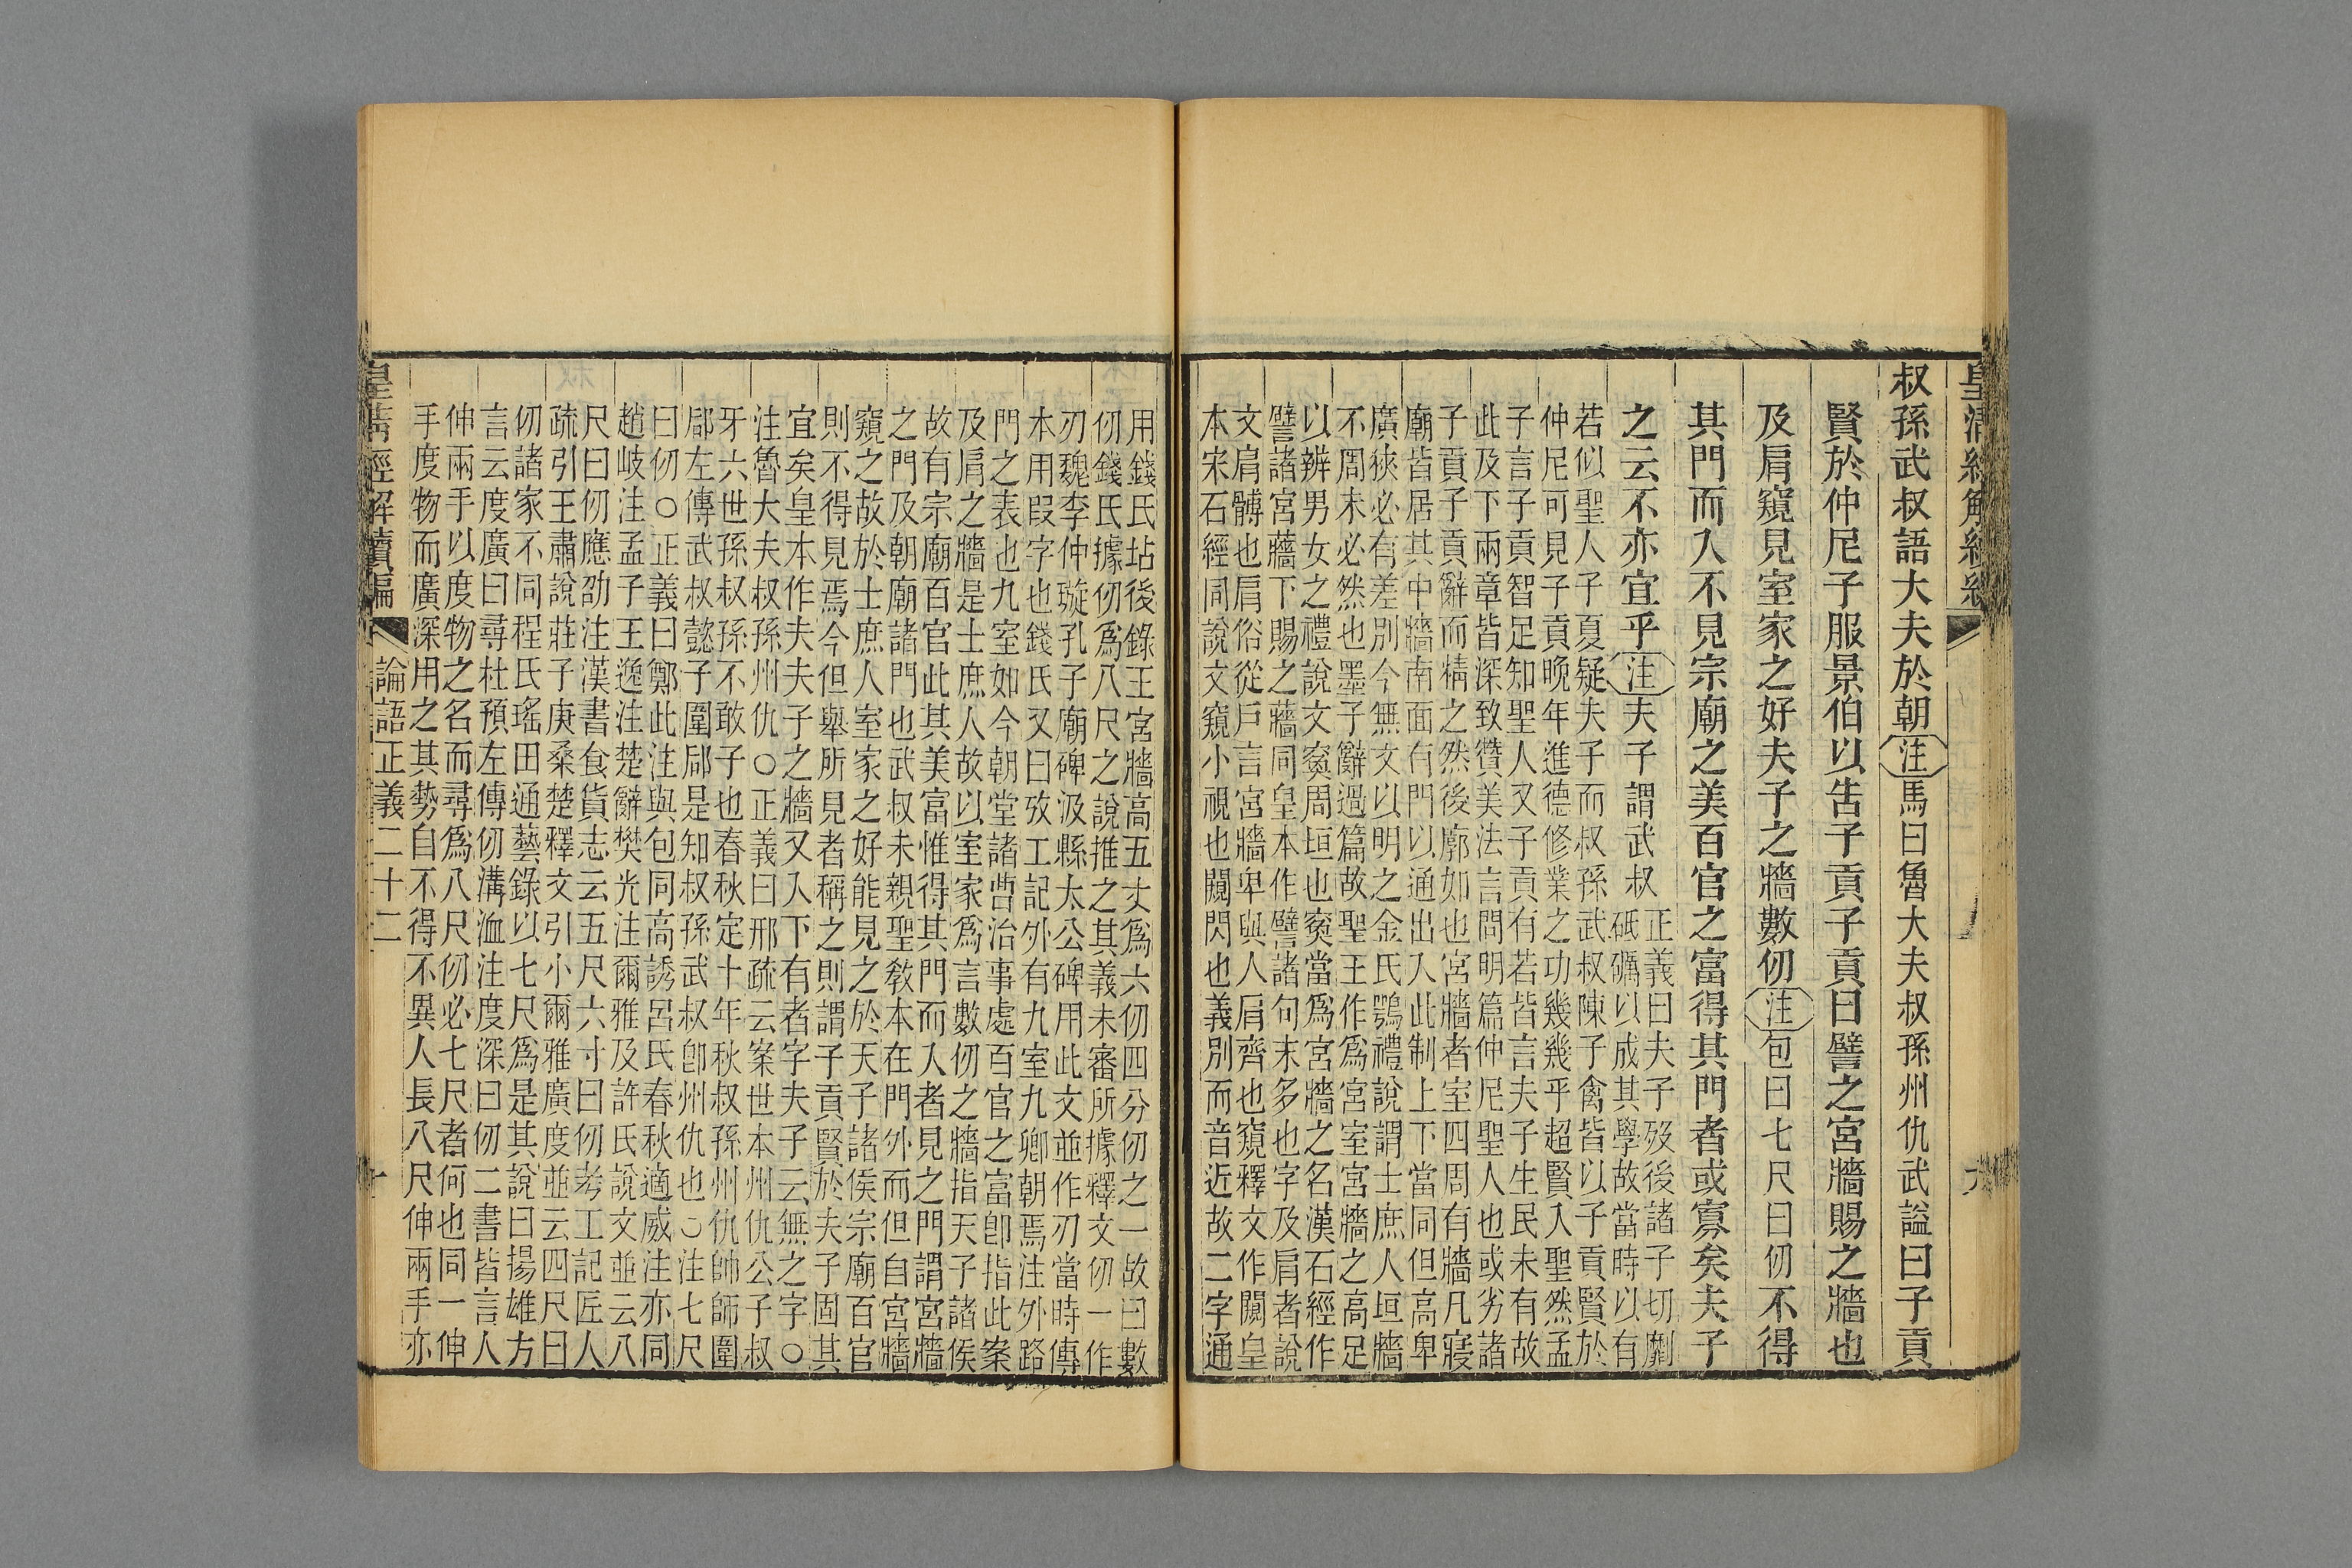 皇清經解續
叔孫武叔語大夫於朝注馬曰魯大夫叔孫州仇武謚曰子貢
賢於仲尼子服景伯以告子貢子貢曰譬之宮牆賜之牆也
及肩窺見室家之好夫子之牆數仞注包曰七尺曰仞不得
其門而入不見宗廟之美百官之富得其門者或寡矣夫子
之云不亦宜乎注夫子謂武叔正義曰夫子歿後諸子切劘
砥礪以成其學故當時以有
若似聖人子夏疑夫子而叔孫武叔陳子禽皆以子貢賢於
仲尼可見子貢晚年進德修業之功幾幾乎超賢入聖然孟
子言子貢智足知聖人又子貢有若皆言夫子生民未有故
此及下兩章皆深致贊美法言問明篇仲尼聖人也或劣諸
子貢子貢辭而精之然後廓如也宮牆者室四周有牆凡寢
廟皆居其中牆南面有門以通出入此制上下當同但高卑
廣狹必有差別今無文以明之金氏鶚禮說謂士庶人垣牆
不周未必然也墨子辭過篇故聖王作爲宮室宮牆之高足
以辨男女之禮說文寏周垣也寏當爲宮牆之名漢石經作
譬諸宮蘠下賜之蘠同皇本作譬諸句末多也字及肩者說
文肩髆也肩俗從戶言宮牆卑與人肩齊也窺釋文作闚皇
本宋石經同說文窺小視也闚閃也義別而音近故二字通
用錢氏坫後錄王宮牆高五丈爲六仞四分仞之一故曰數
仞錢氏據仞爲八尺之說推之其義未審所據釋文仞一作
刃魏李仲璇孔子廟碑汲縣太公碑用此文並作刃當時傳
本用叚字也錢氏又曰攷工記外有九室九卿朝焉注外路
門之表也九室如今朝堂諸曹治事處百官之富卽指此案
及肩之牆是士庶人故以室家爲言數仞之牆指天子諸侯
故有宗廟百官此其美富惟得其門而入者見之門謂宮牆
之門及朝廟諸門也武叔未親聖敎本在門外而但自宮牆
窺之故於士庶人室家之好能見之於天子諸侯宗廟百官
則不得見焉今但舉所見者稱之則謂子貢賢於夫子固其
宜矣皇本作夫夫子之牆又入下有者字夫子云無之字○
注魯大夫叔孫州仇○正義曰邢疏云案世本州仇公子叔
牙六世孫叔孫不敢子也春秋定十年秋叔孫州仇帥師圍
郈左傳武叔懿子圍郈是知叔孫武叔卽州仇也○注七尺
曰仞○正義曰鄭此注與包同高誘呂氏春秋適威注亦同
趙岐注孟子王逸注楚辭樊光注爾雅及許氏說文並云八
尺曰仞應劭注漢書食貨志云五尺六寸曰仞考工記匠人
疏引王肅說莊子庚桑楚釋文引小爾雅廣度並云四尺曰
仞諸家不同程氏瑤田通藝錄以七尺爲是其說曰揚雄方
言云度廣曰尋杜預左傳仞溝洫注度深曰仞二書皆言人
伸兩手以度物之名而尋爲八尺仞必七尺者何也同一伸
手度物而廣深用之其勢自不得不異人長八尺伸兩手亦
皇清經解續編 論語正義二十二